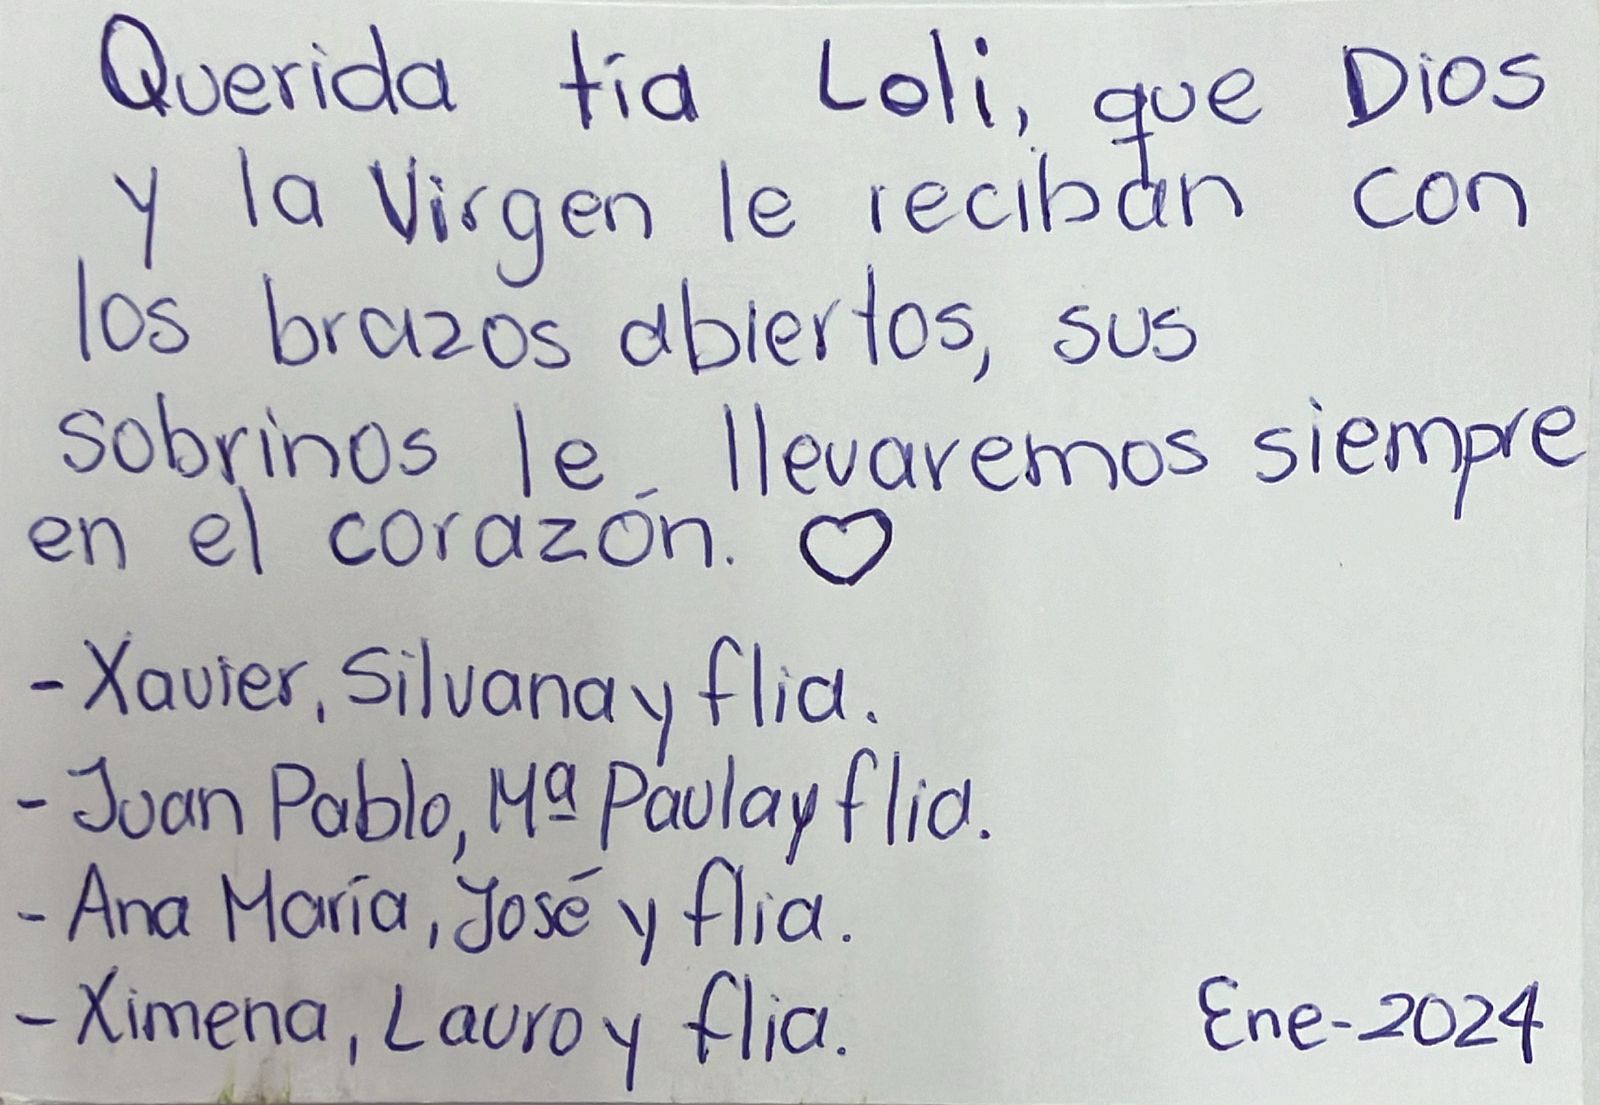 Querida tía Loli, que Dios
y la Virgen le reciban con
los brazos abiertos, sus
sobrinos le llevaremos siempre
en el corazón. ♡
- Xavier, Silvana y flia.
- Juan Pablo, Mª Paula y flia.
- Ana María, José y flia.
- Ximena, Lauro y flia.
Ene-2024